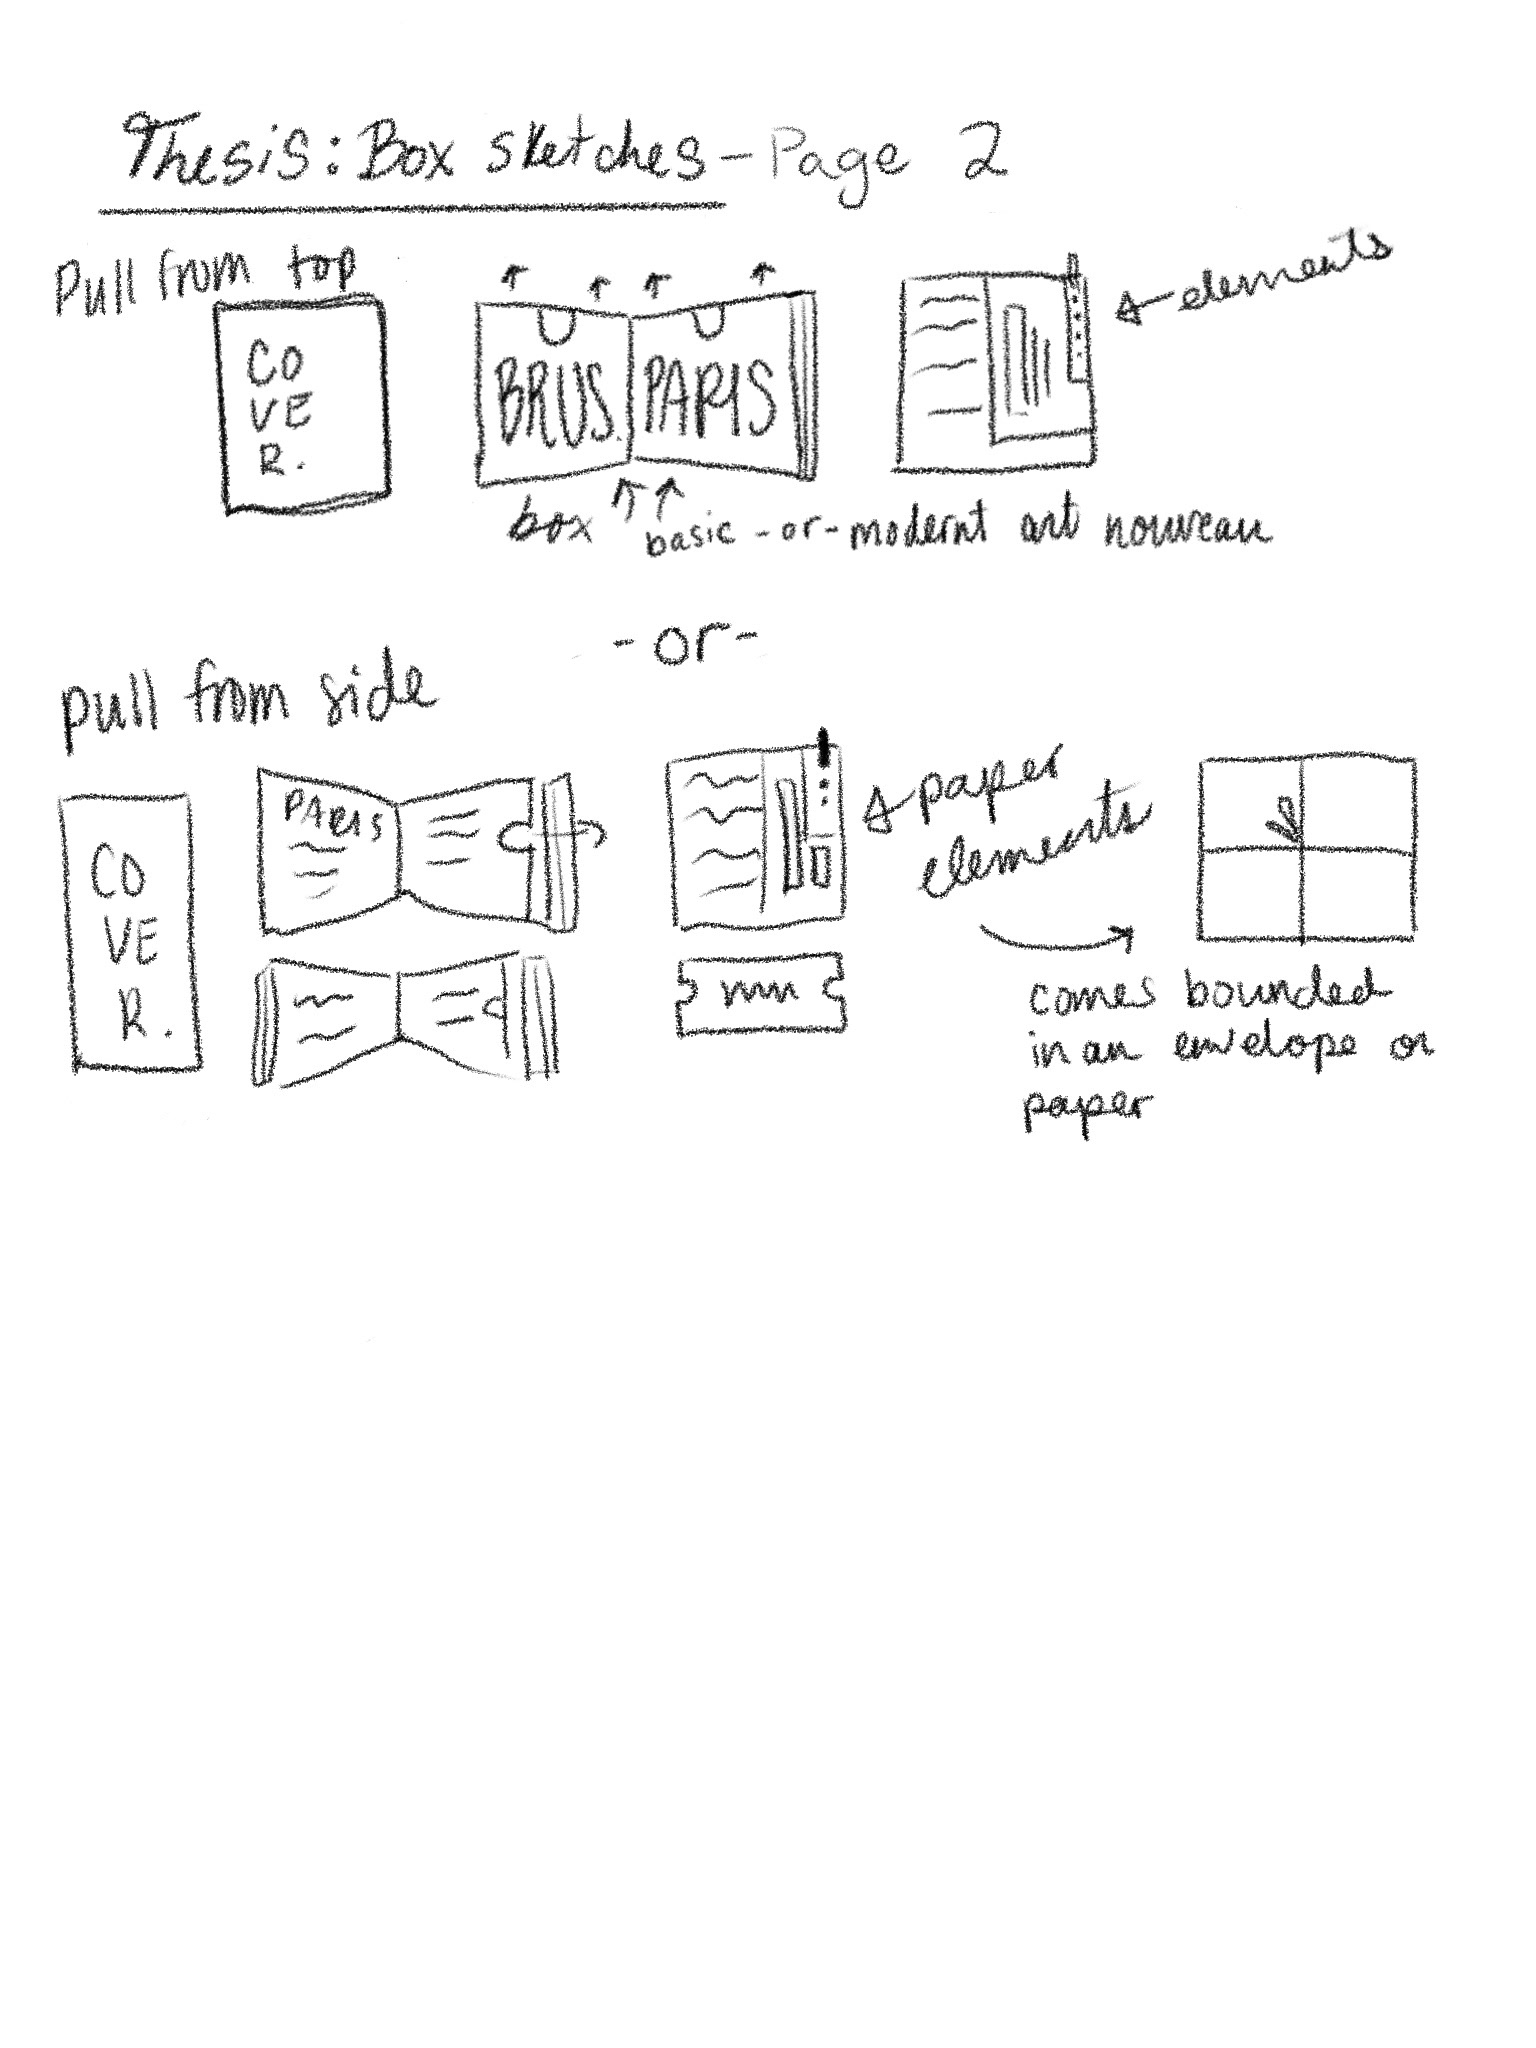 Thesis: Box sketches - Page 2
Pull from top
CO
VE
R.
BRUS. PARIS
elements
box
basic -or- modernt art nouveau
-or-
pull from side
CO
VE
R.
PARIS
paper
elements
comes bounded
in an envelope or
paper